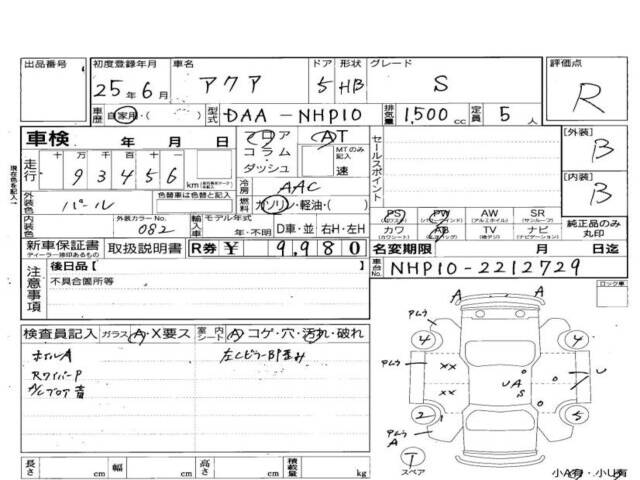 出品番号
初度登録年月
25年6月
車名
アクア
ドア
5
形状
HB
グレード
S
評価点
R
車歴
自家用・( )
型式
DAA-NHP10
排気量
1,500cc
定員
5人
車検
年 月 日
フロア
コラム・
ダッシュ
AT
MTのみ記入
速
セールスポイント
[外装]
B
[内装]
B
現在色を記入
走行
十 万 千 百 十 一
93456
km
冷房
AAC
外装色
パール
色替車は色替と記入
燃料
ガソリン・軽油・( )
内装色
外装カラーNo.
082
輸入車
モデル年式
年・不明
D車・並
右H・左H
PS
(パワステ)
PW
(パワーウインド)
AW
(アルミホイル)
SR
(サンルーフ)
カワ
(カワシート)
AB
(エアバッグ)
TV
(地デジ)
ナビ
(ナビゲーション)
純正品のみ
丸印
新車保証書
ディーラー捺印あるもの
取扱説明書
R券
¥ 9,980
名変期限
月 日迄
車台No.
NHP10-2212729
注意事項
後日品【 】
不具合箇所等
ロック車
検査員記入
ガラス A・X要ス
室内シート A コゲ・穴・汚れ・破れ
ホイルA
RワイパーP
A/Cブロア音
左CピラーBP歪み
A
A
アルウ
4
アルウ
4
アルウ
XX
XX
UA
S
U
2
5
アルウ
A
T
スペア
小A有・小U有
長さ
cm
幅
cm
高さ
cm
積載量
kg